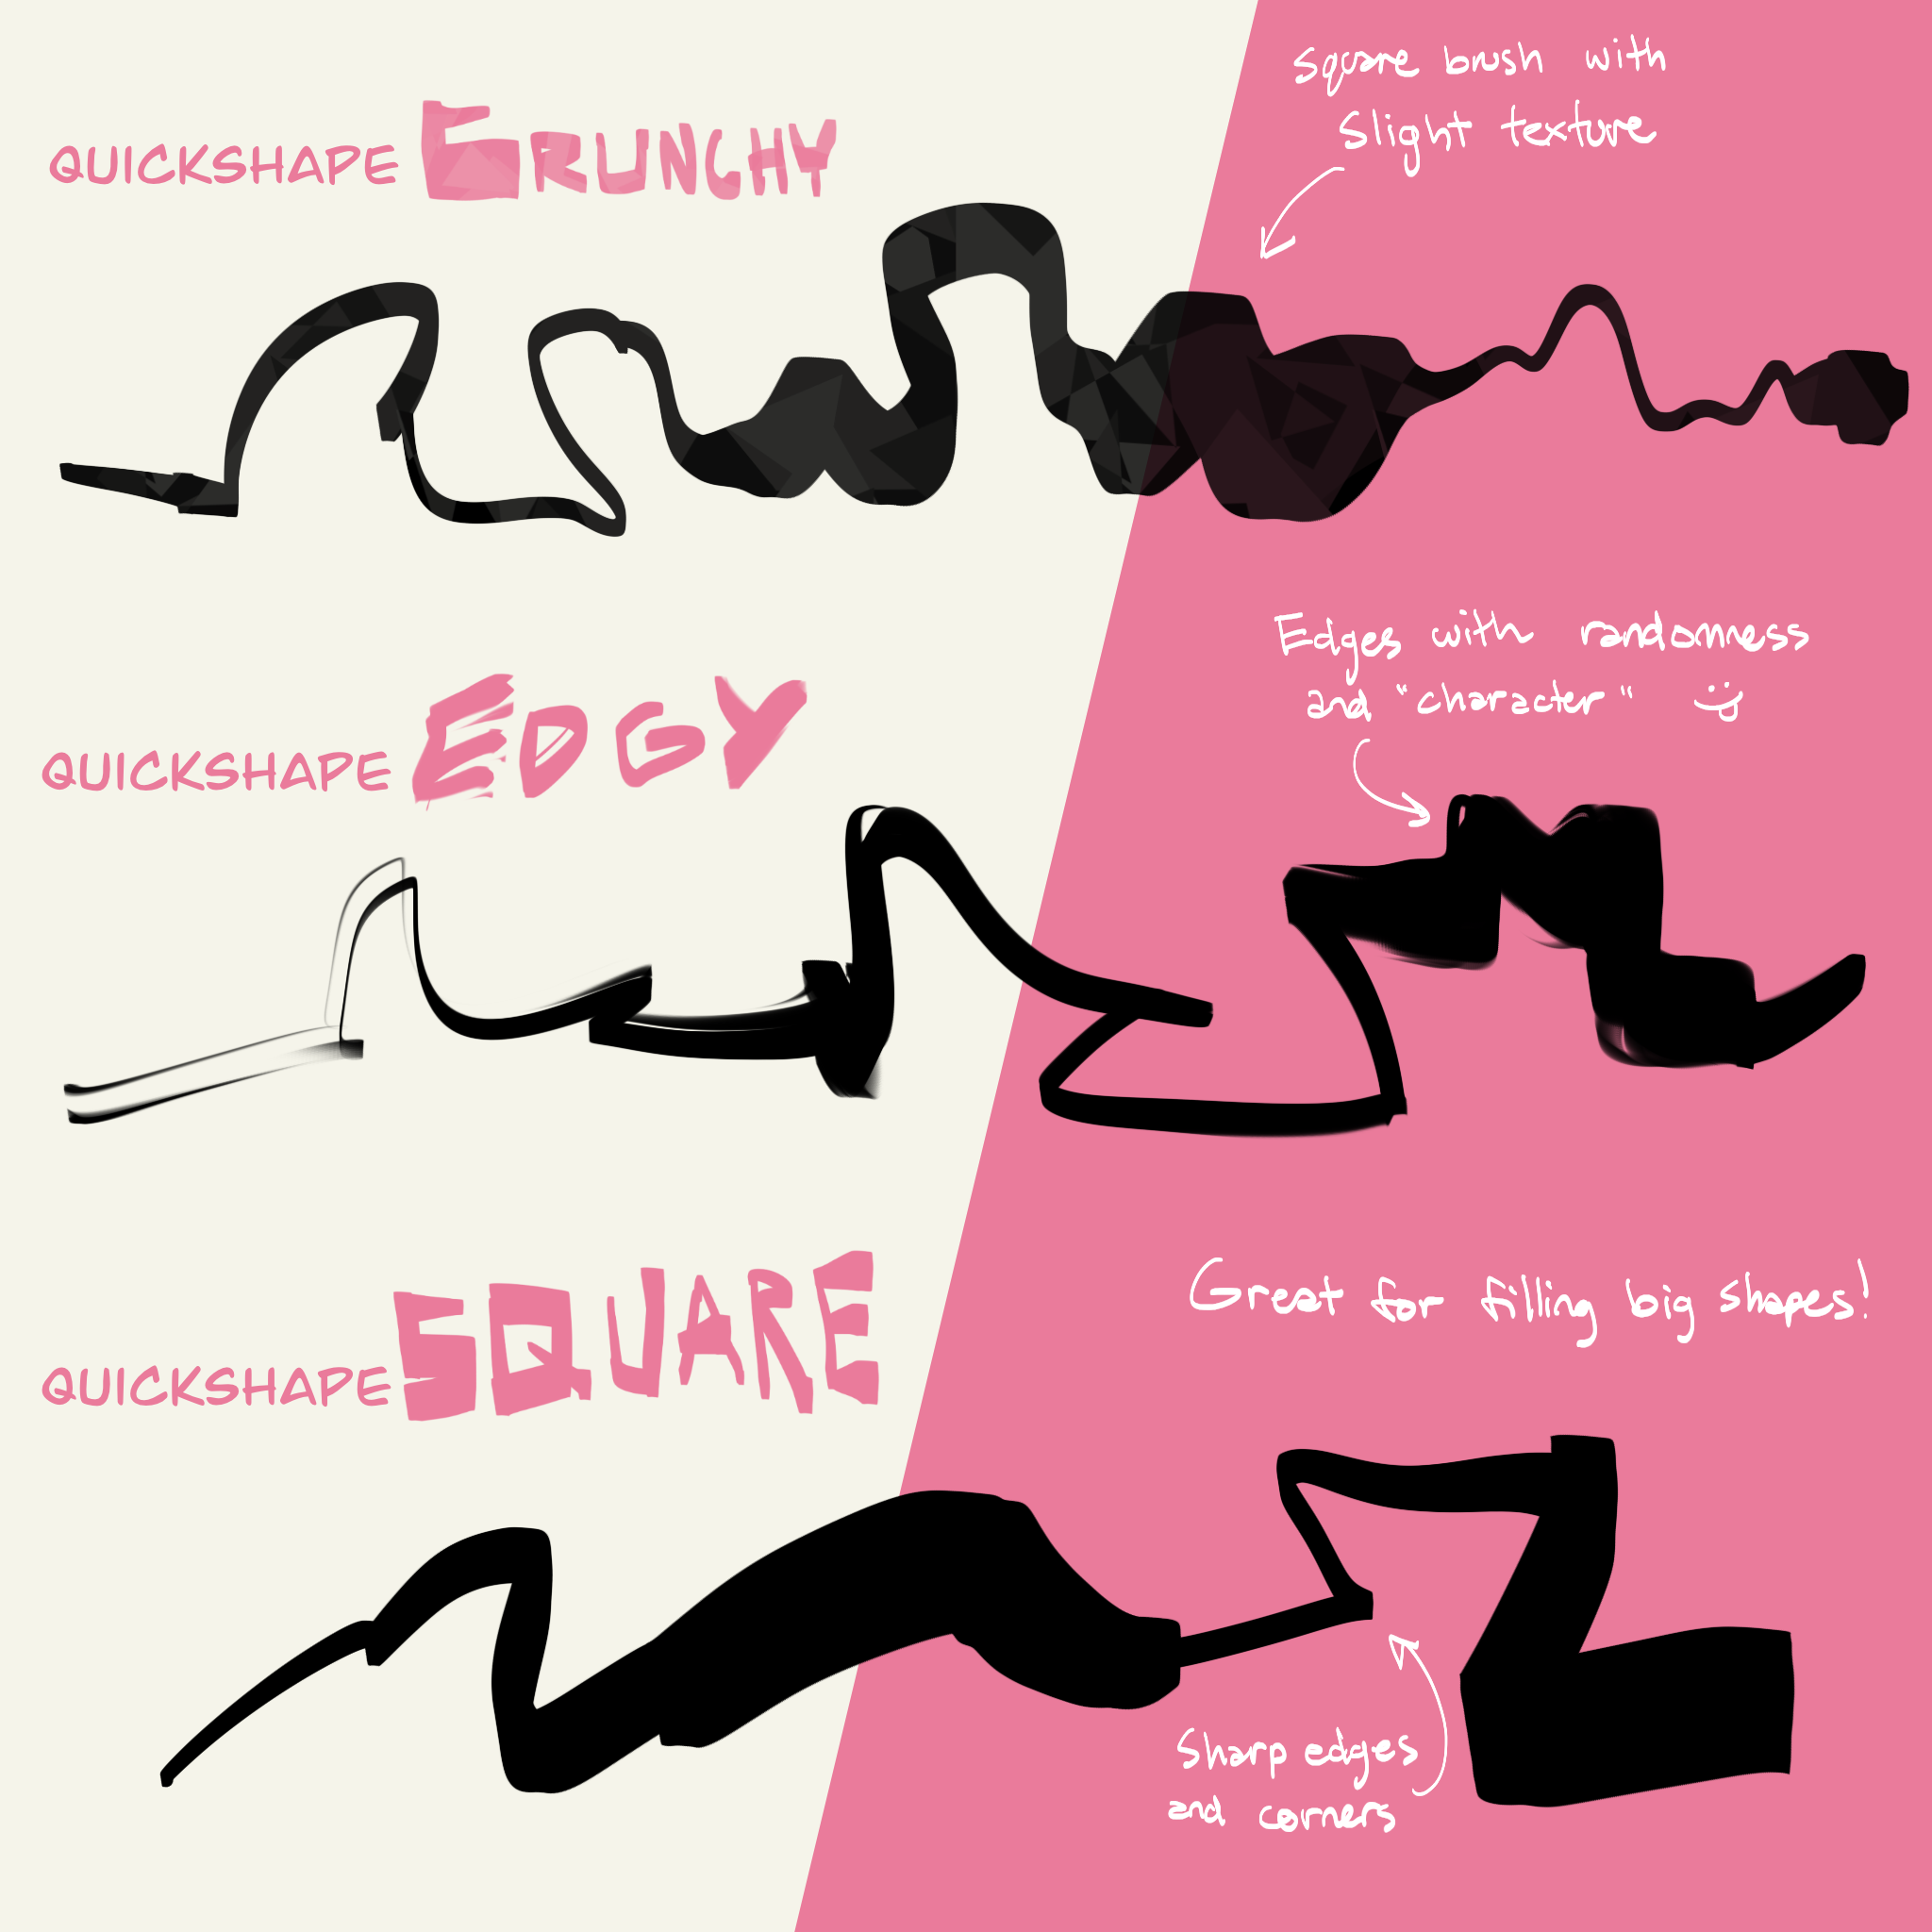 square brush with
slight texture
QUICKSHAPE CRUNCHY
Edges with randomness
and "character" :)
QUICKSHAPE EDGY
Great for filling big shapes!
QUICKSHAPE SQUARE
Sharp edges
and corners